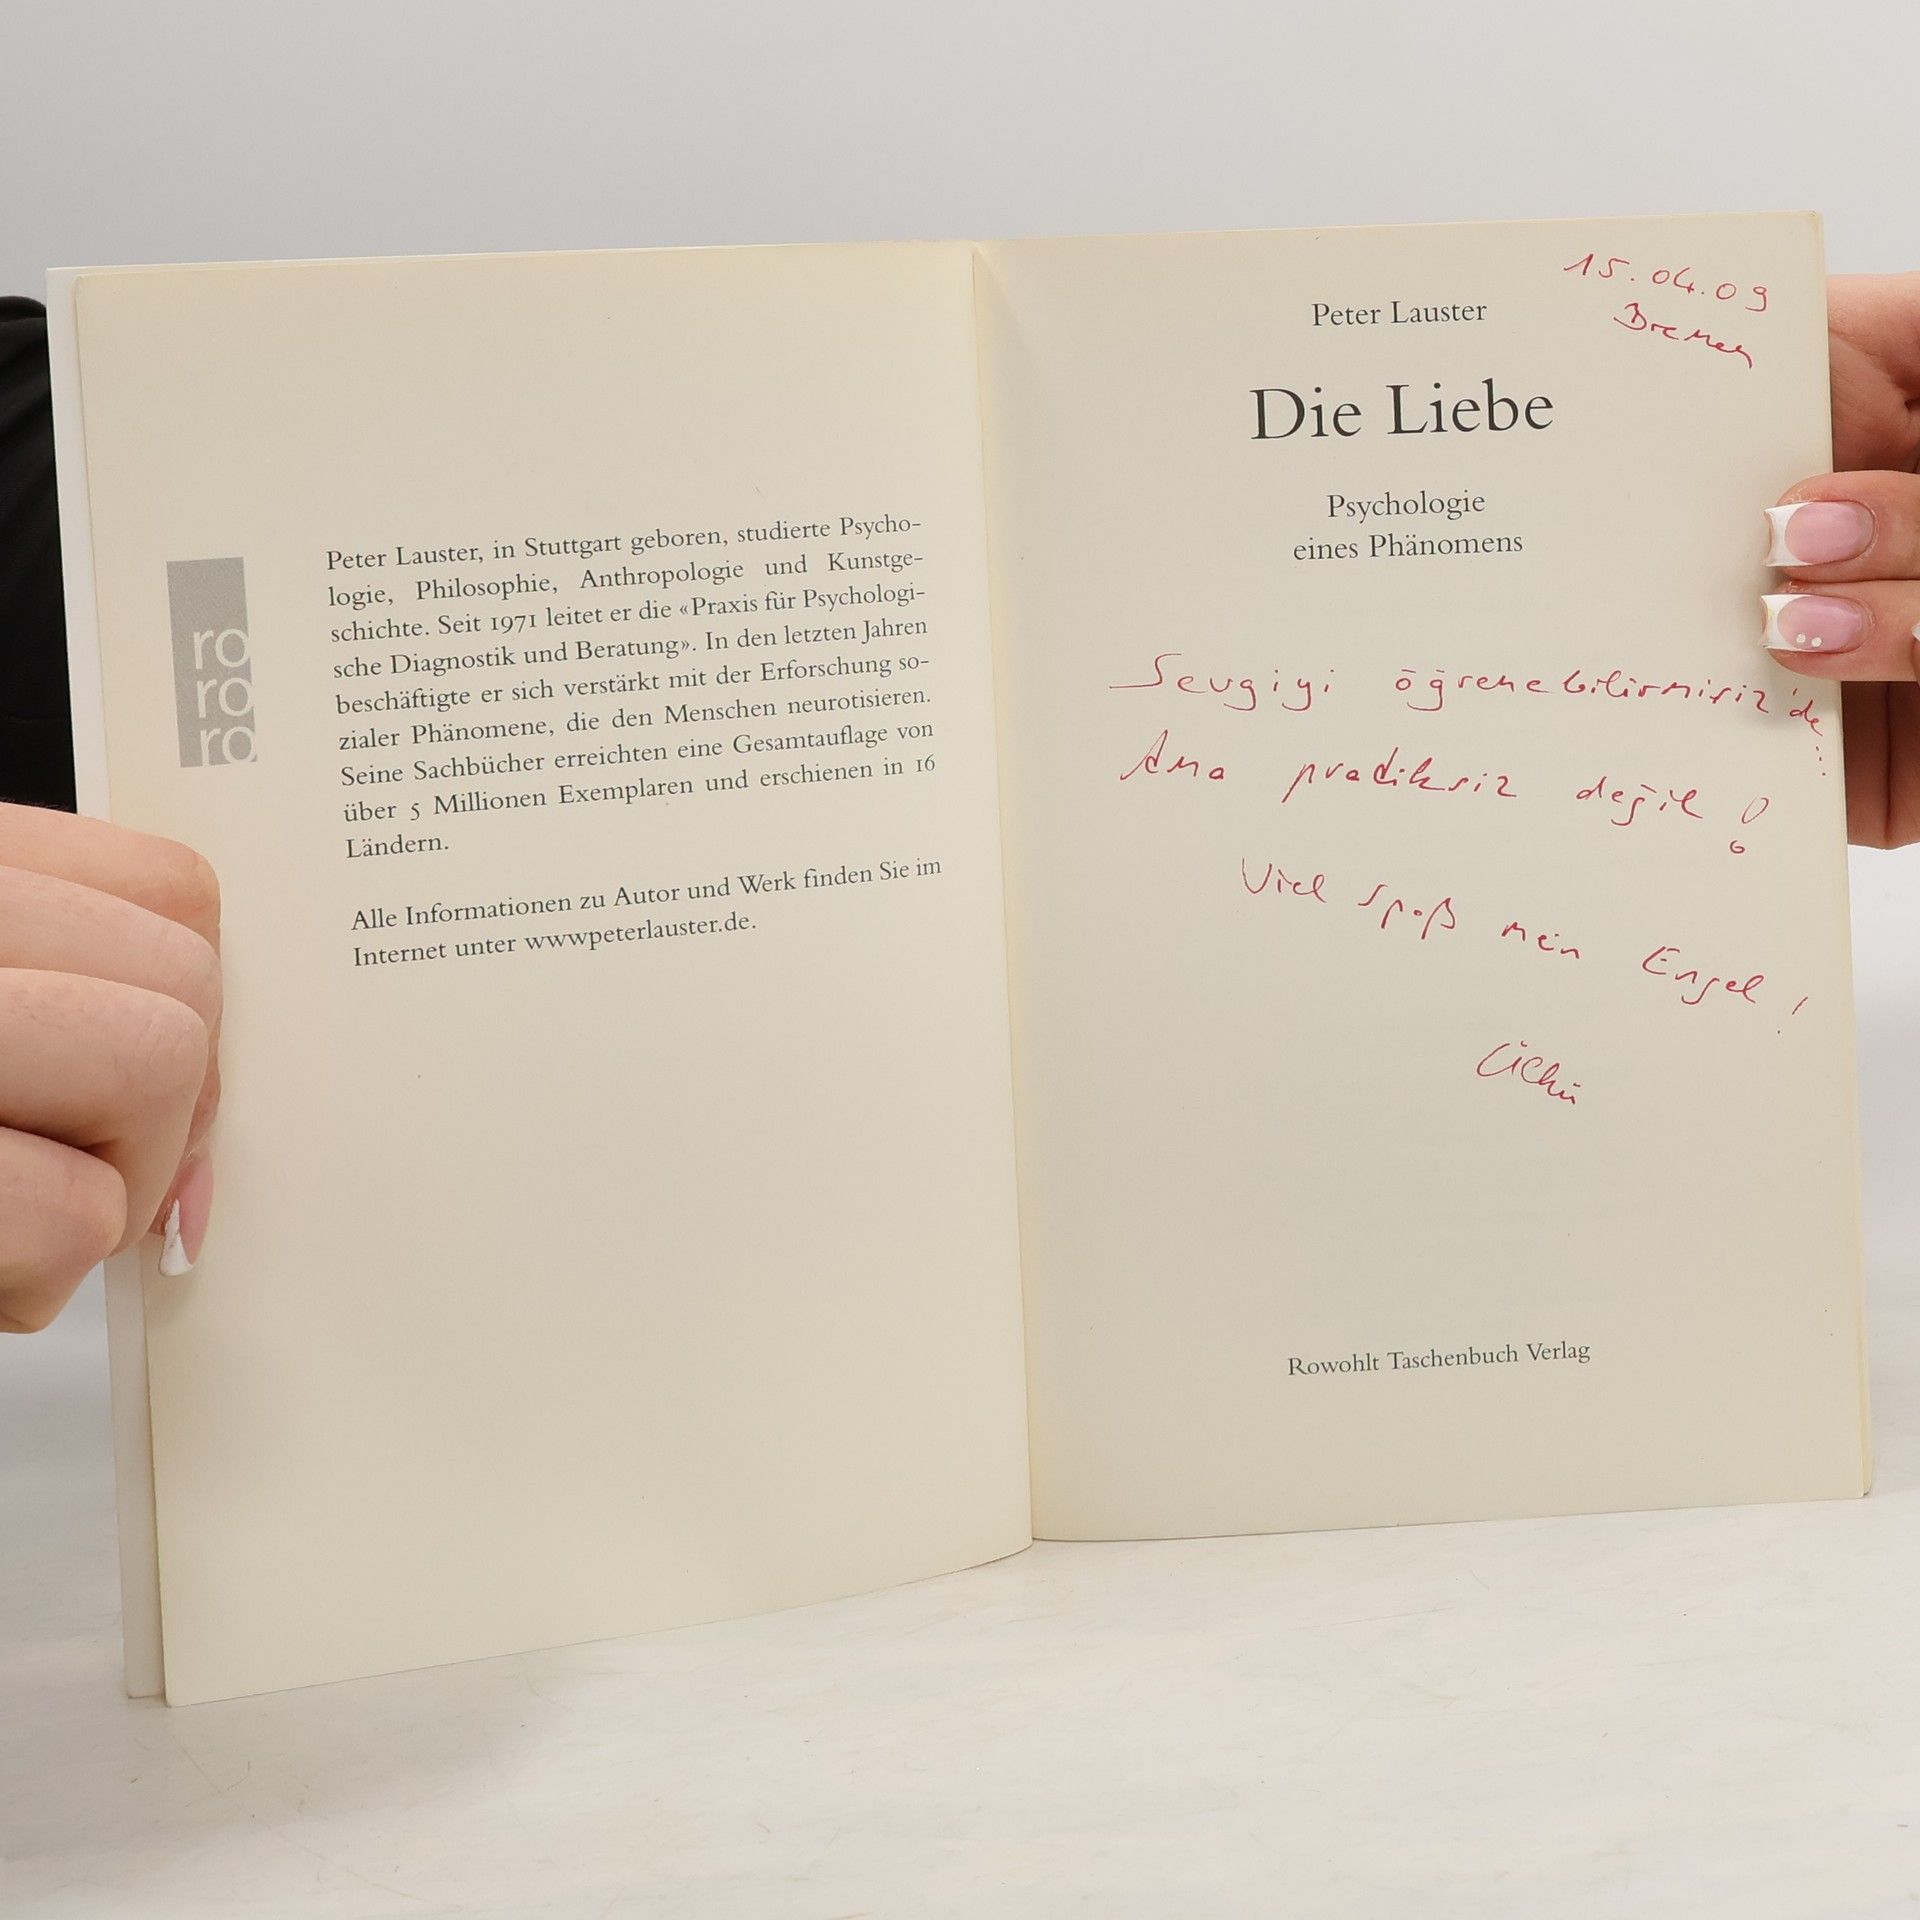 ro
ro
ro
Peter Lauster, in Stuttgart geboren, studierte Psycho-
logie, Philosophie, Anthropologie und Kunstge-
schichte. Seit 1971 leitet er die «Praxis für Psychologi-
sche Diagnostik und Beratung». In den letzten Jahren
beschäftigte er sich verstärkt mit der Erforschung so-
zialer Phänomene, die den Menschen neurotisieren.
Seine Sachbücher erreichten eine Gesamtauflage von
über 5 Millionen Exemplaren und erschienen in 16
Ländern.
Alle Informationen zu Autor und Werk finden Sie im
Internet unter wwwpeterlauster.de.
15.04.09
Bremen
Peter Lauster
Die Liebe
Psychologie
eines Phänomens
Sevgiyi öğrenebilirmisiz'de...
Ama pratiksiz değil!
Viel Spaß mein Engel!
Rowohlt Taschenbuch Verlag